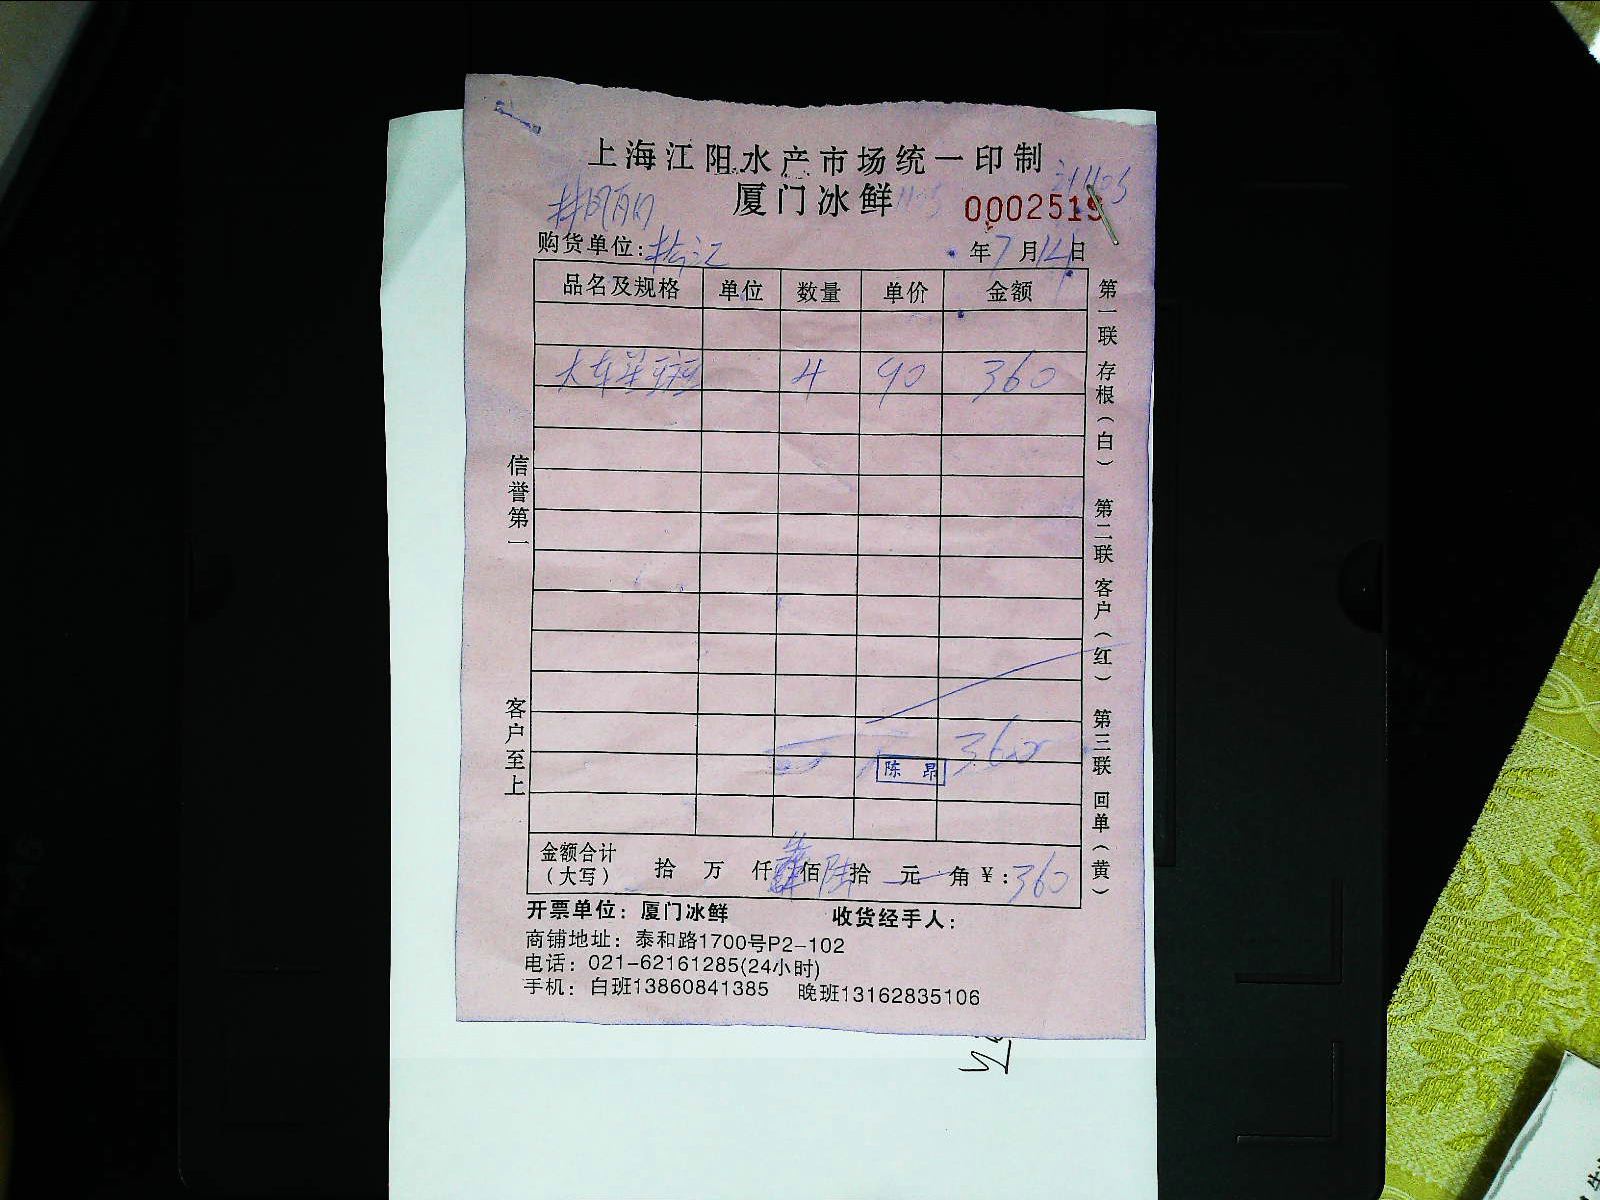 上海江阳水产市场统一印制
厦门冰鲜
0002519
购货单位:
年7月14日
品名及规格 单位 数量 单价 金额
4 90 360
360
陈昂
金额合计(大写) 拾 万 仟 佰陆拾 元 角 ¥:360
开票单位:厦门冰鲜 收货经手人:
商铺地址:泰和路1700号P2-102
电话:021-62161285(24小时)
手机:白班13860841385 晚班13162835106
信誉第一
客户至上
第一联 存根(白) 第二联 客户(红) 第三联 回单(黄)